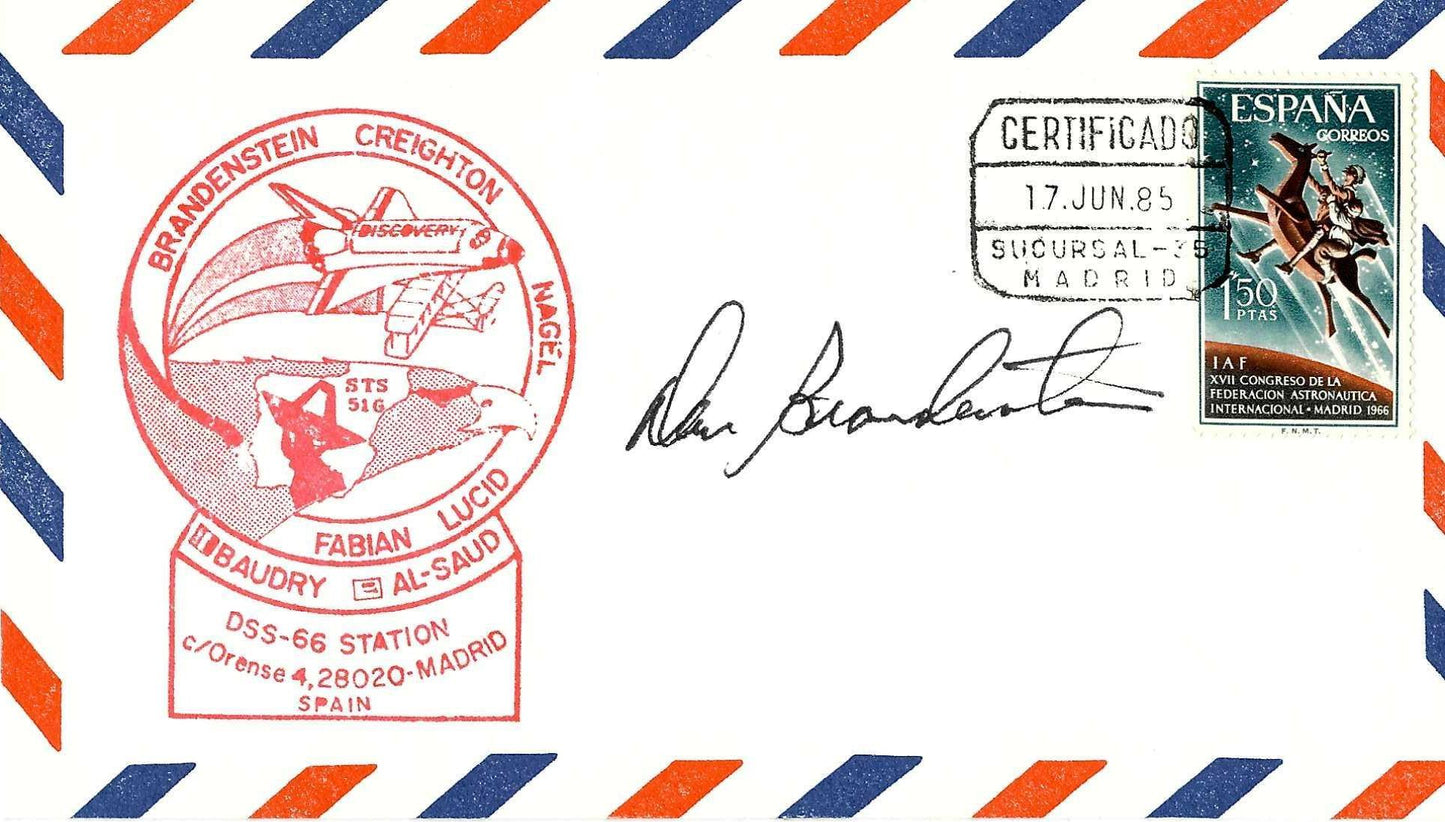 BRANDENSTEIN CREIGHTON NAGEL
DISCOVERY
STS
51G
FABIAN LUCID
BAUDRY AL-SAUD
DSS-66 STATION
c/Orense 4, 28020-MADRID
SPAIN
Dan Brandenstein
CERTIFiCADO
17.JUN.85
SUCURSAL-35
MADRID
ESPAÑA
CORREOS
1'50
PTAS
IAF
XVII CONGRESO DE LA
FEDERACION ASTRONAUTICA
INTERNACIONAL • MADRID 1966
F.N.M.T.